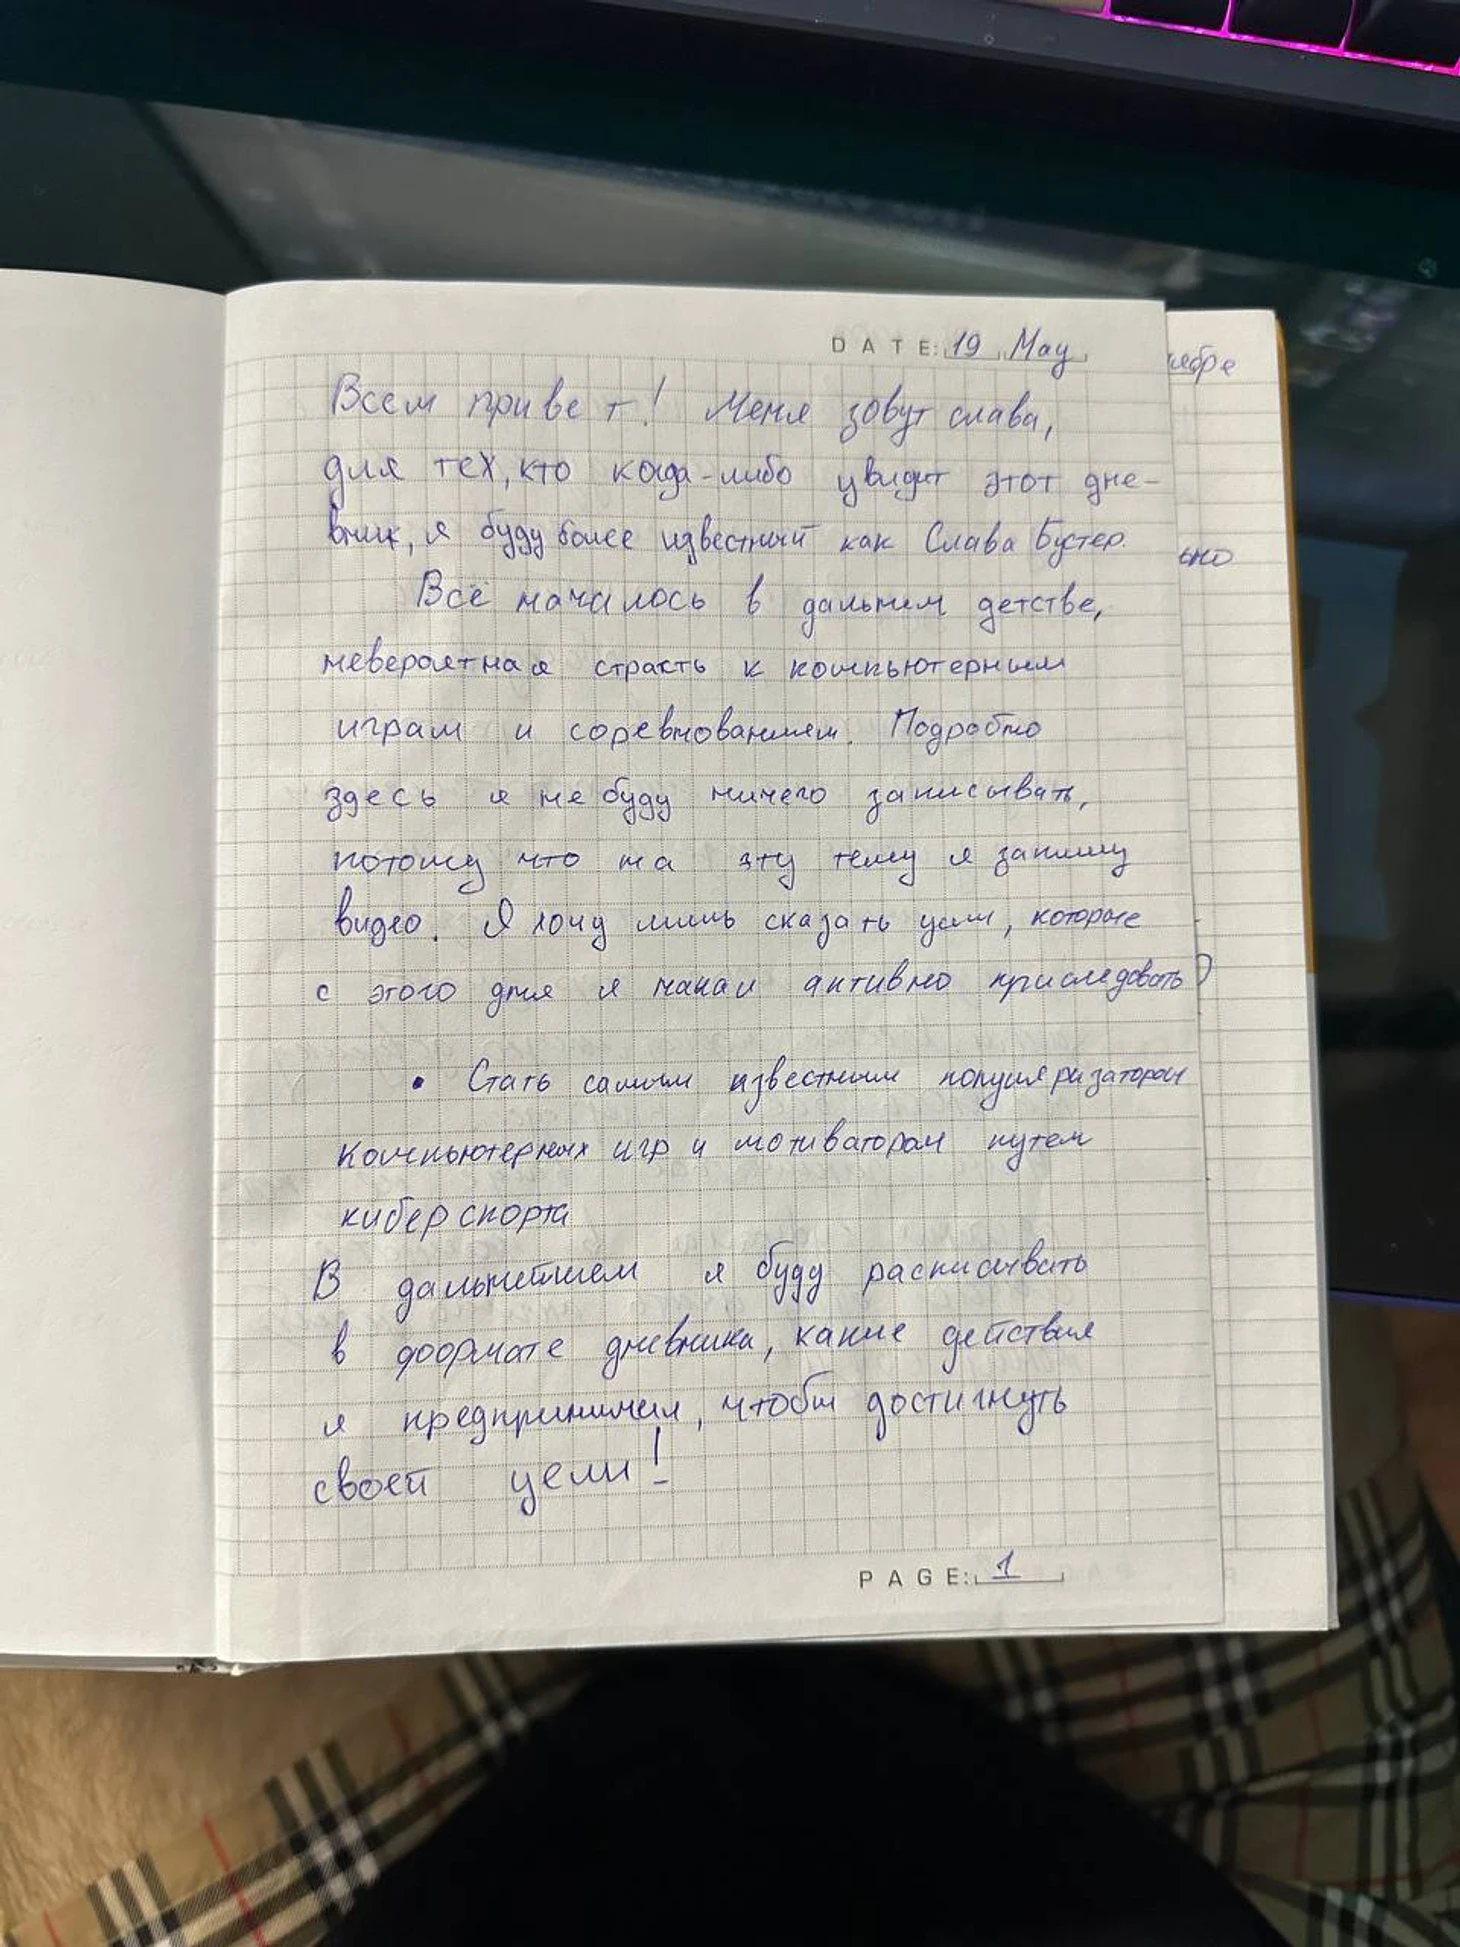 DATE: 19 May
Всем привет! Меня зовут слава,
для тех, кто когда-либо увидит этот дне-
вник, я буду более известный как Слава Бустер.
Всё началось в дальнем детстве,
невероятная страсть к компьютерным
играм и соревнованием. Подробно
здесь я не буду ничего записывать,
потому что на эту тему я запишу
видео. Я хочу лишь сказать цели, которые
с этого дня я начал активно приследовать
• Стать самым известным популяризатором
компьютерных игр и мотиватором путем
киберспорта
В дальнейшем я буду расписывать
в формате дневника, какие действия
я предпринимал, чтобы достигнуть
своей цели!
PAGE: 1